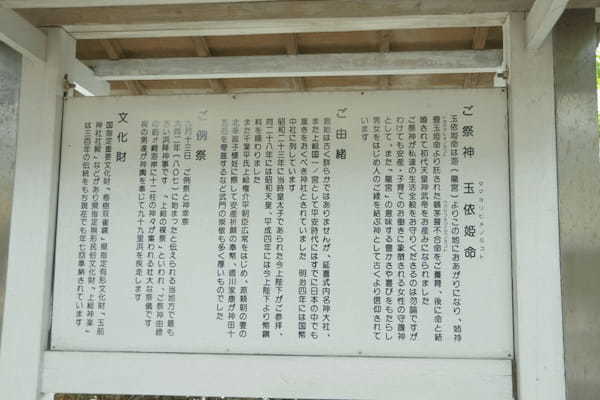 ご祭神 玉依姫命
タマヨリヒメノミコト
玉依姫命は海(龍宮)よりこの地におあがりになり、姉神
豊玉姫命より託された鵜茅葺不合命をご養育、後に命と結
婚されて初代天皇神武帝をお産みになられました
ご祭神が私達の生活全般をお守りくださるのは勿論ですが
わけても安産・子育てのお働きに象徴される女性の守護神
として、また「龍宮」の意味する豊かさや喜びをもたらし
男女をはじめ人のご縁を結ぶ神として古くより信仰されて
います
ご由緒
創始は古く詳らかではありませんが、延喜式内名神大社、
また上総国一ノ宮として平安時代にはすでに日本の中でも
重きをおくべき神社とされていました 明治四年には国幣
中社に列しています
昭和二十三年に当時皇太子であられた今上陛下がご参拝、
同二十八年には昭和天皇、平成四年には今上陛下より幣饌
料を賜わりました
また千葉平氏上総権介平朝臣広常をはじめ、源頼朝の妻の
北条政子懐妊に際して安産祈願の奉幣、徳川家康が神田十
五石を寄進するなど武門の崇敬も多く厚いものでした
ご例祭
九月十三日 ご例祭と神幸祭
大同二年(八〇七)に始まったと伝えられる当地方で最も
古い浜降神事です 「上総の裸祭」といわれ、ご祭神由縁
の釣ヶ崎海岸に十二社の神々が集われる壮大な祭儀です
裸の男達が神輿を奉じて九十九里浜を疾走します
文化財
国指定重要文化財、「梅樹双雀鏡」県指定有形文化財、「玉前
神社社殿」などがあり県指定無形民俗文化財、「上総神楽」
は三百年の伝統をもち現在でも年七回奉納されています